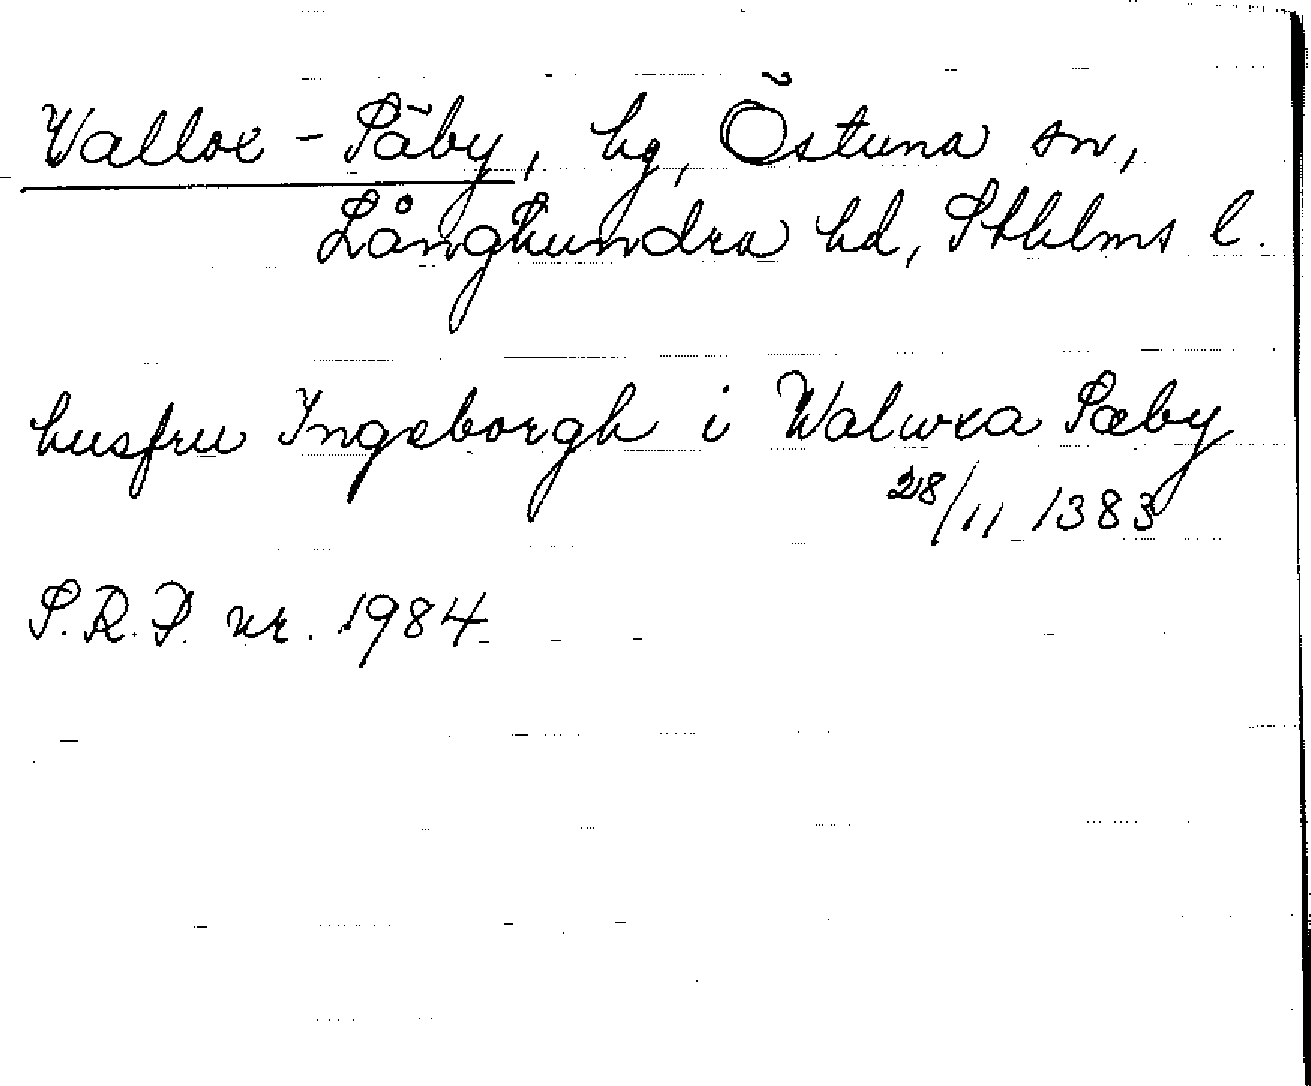 Valloxe - Säby, hg, Östuna sn,
Långhundra hd, Sthlms l.
husfru Ingeborgh i Walwxa Sæby
28/11 1383
S.R.P. nr. 1984